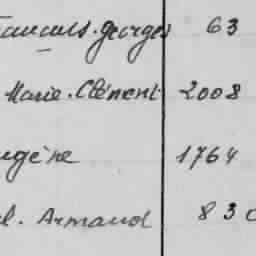 georges 63
Marie. Clément 2008
ugène 1764
l. Armand 830